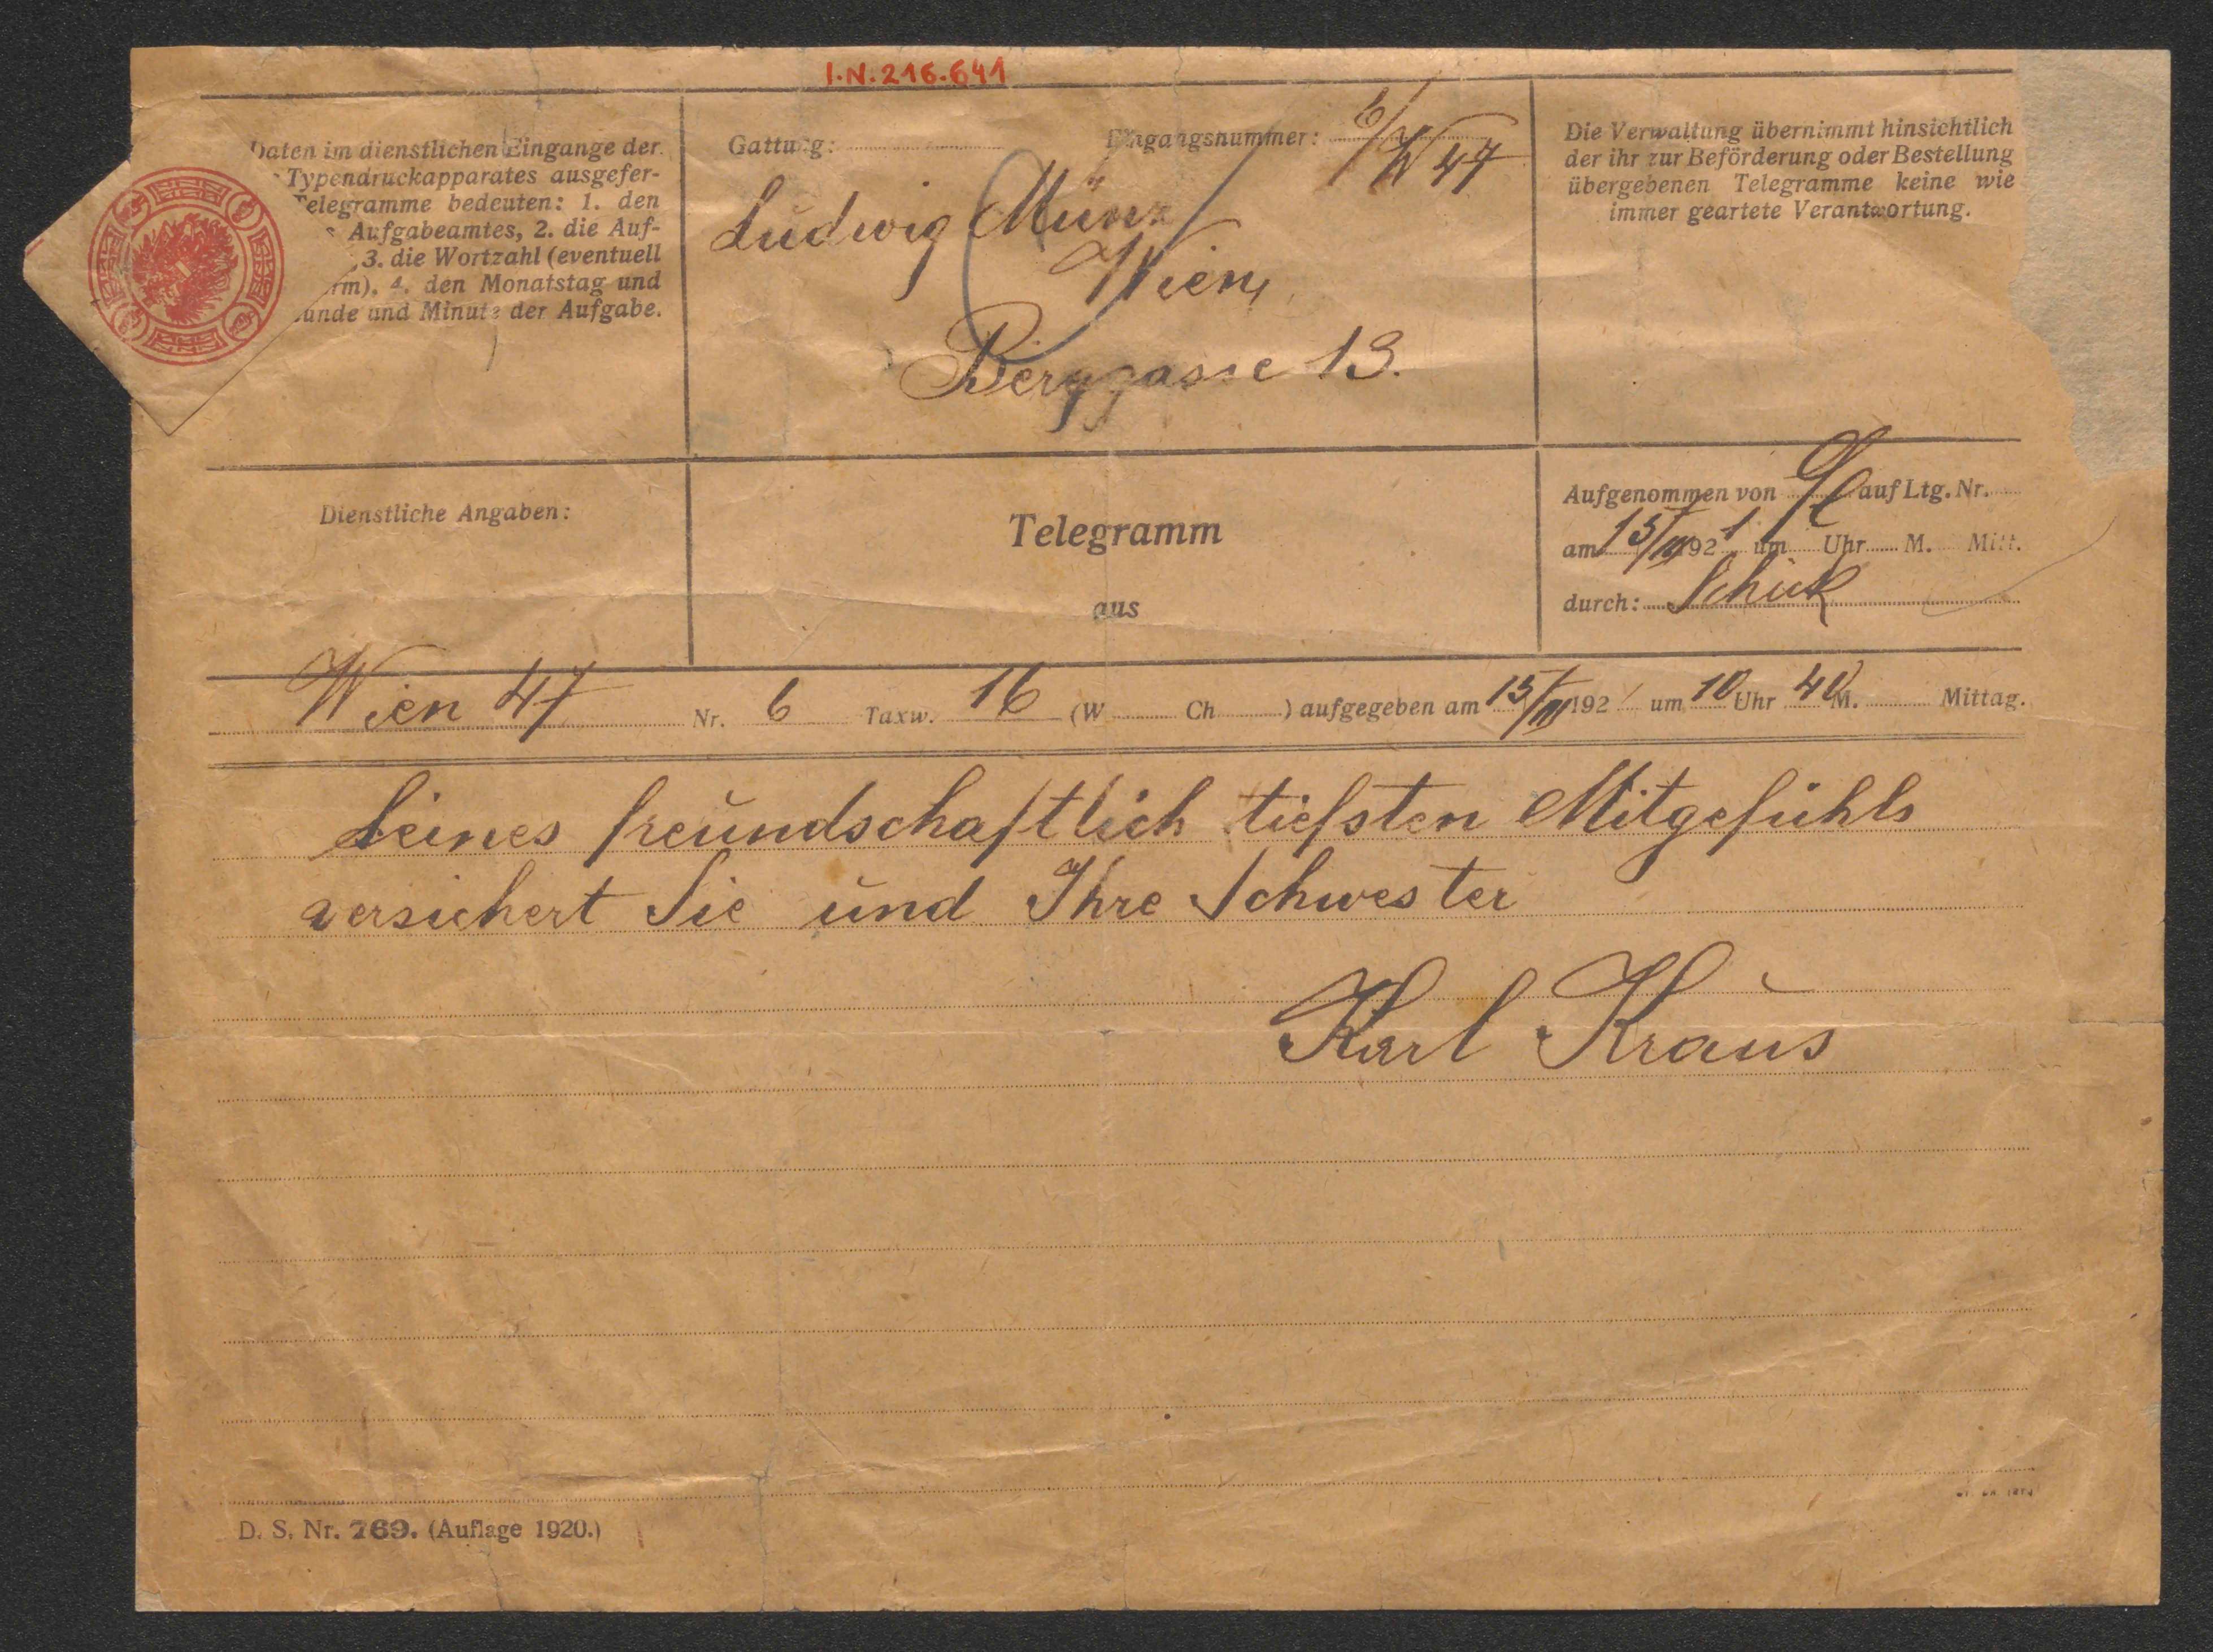 I.N. 216.641
Daten im dienstlichen Eingange der
Typendruckapparates ausgefer-
Telegramme bedeuten: 1. den
Aufgabeamtes, 2. die Auf-
3. die Wortzahl (eventuell
rm), 4. den Monatstag und
unde und Minute der Aufgabe.
Gattung: Eingangsnummer: 6/W 47
Ludwig Münz
Wien,
Berggasse 13.
Die Verwaltung übernimmt hinsichtlich
der ihr zur Beförderung oder Bestellung
übergebenen Telegramme keine wie
immer geartete Verantwortung.
Dienstliche Angaben:
Telegramm
aus
Aufgenommen von auf Ltg. Nr.
am 15/III 1921 um Uhr M. Mitt.
durch: Schick
Wien 47 Nr. 6 Taxw. 16 (W Ch ) aufgegeben am 15/III 192 um 10 Uhr 40 M. Mittag.
Seines freundschaftlich tiefsten Mitgefühls
versichert Sie und Ihre Schwester
Karl Kraus
D. S. Nr. 769. (Auflage 1920.)